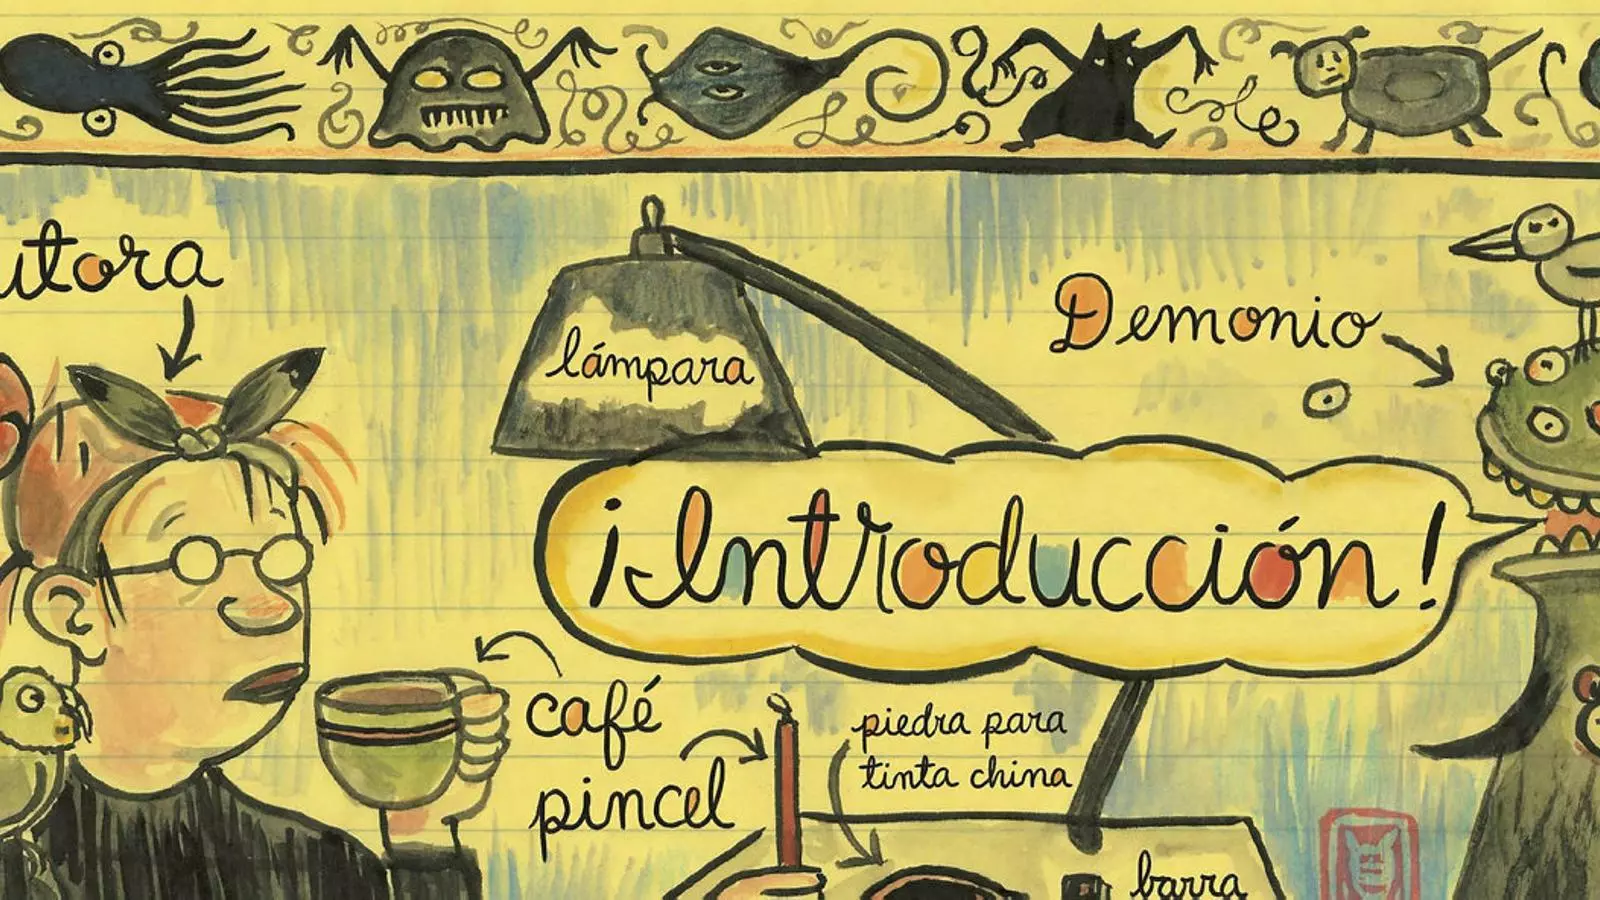 utora
Demonio
lámpara
¡Introducción!
café
pincel
piedra para
tinta china
barra